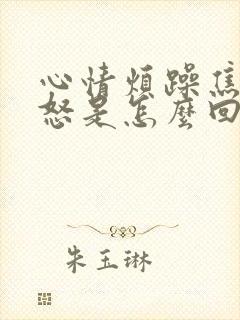 心情煩躁焦
怒是怎麼回
朱玉琳